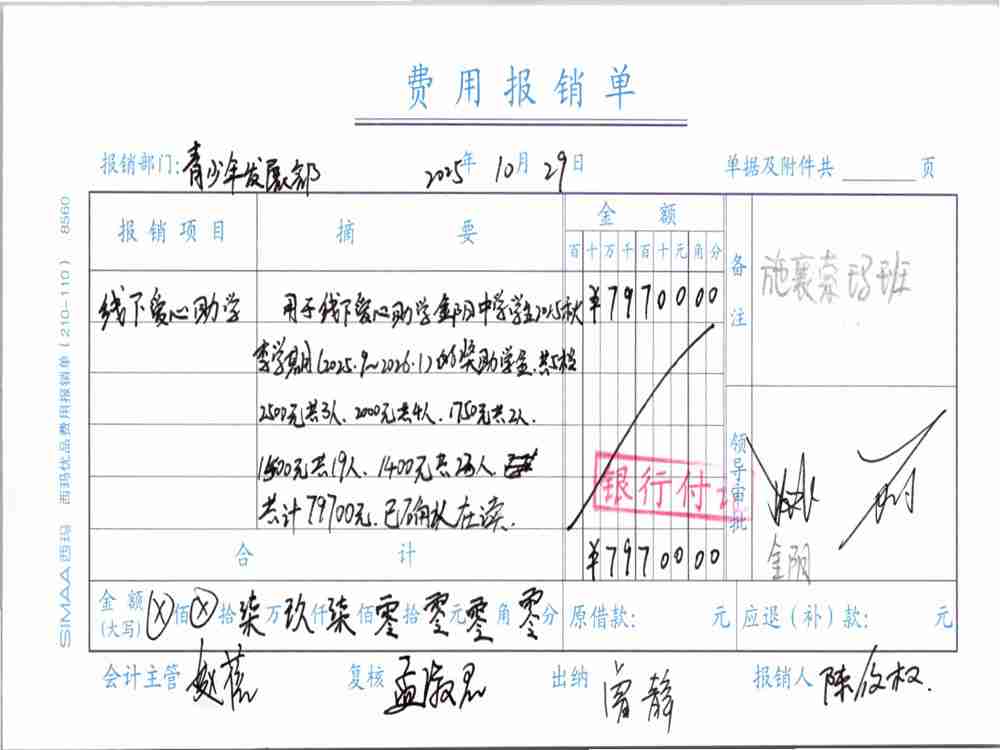 费用报销单
报销部门:青少年发展部 2025年10月29日 单据及附件共 页
报销项目 摘要 金额 备注 施襄索玛班
百十万千百十元角分
线下爱心助学 用于线下爱心助学金阳中学学生2025秋 ¥7970000
季学期(2025.9~2026.1)的奖助学金,共5档
2500元共3人、2000元共4人、1750元共2人、
1500元共19人、1400元共23人
共计79700元.已确认在读.
银行付
领导审批
金阳
合计 ¥7970000
金额(大写) ⊗佰⊗拾柒万玖仟柒佰零拾零元零角零分 原借款: 元 应退(补)款: 元
会计主管 复核 孟淑君 出纳 曾静 报销人 陈俊权.
SIMAA西玛 西玛优品费用报销单(210-110) 8560